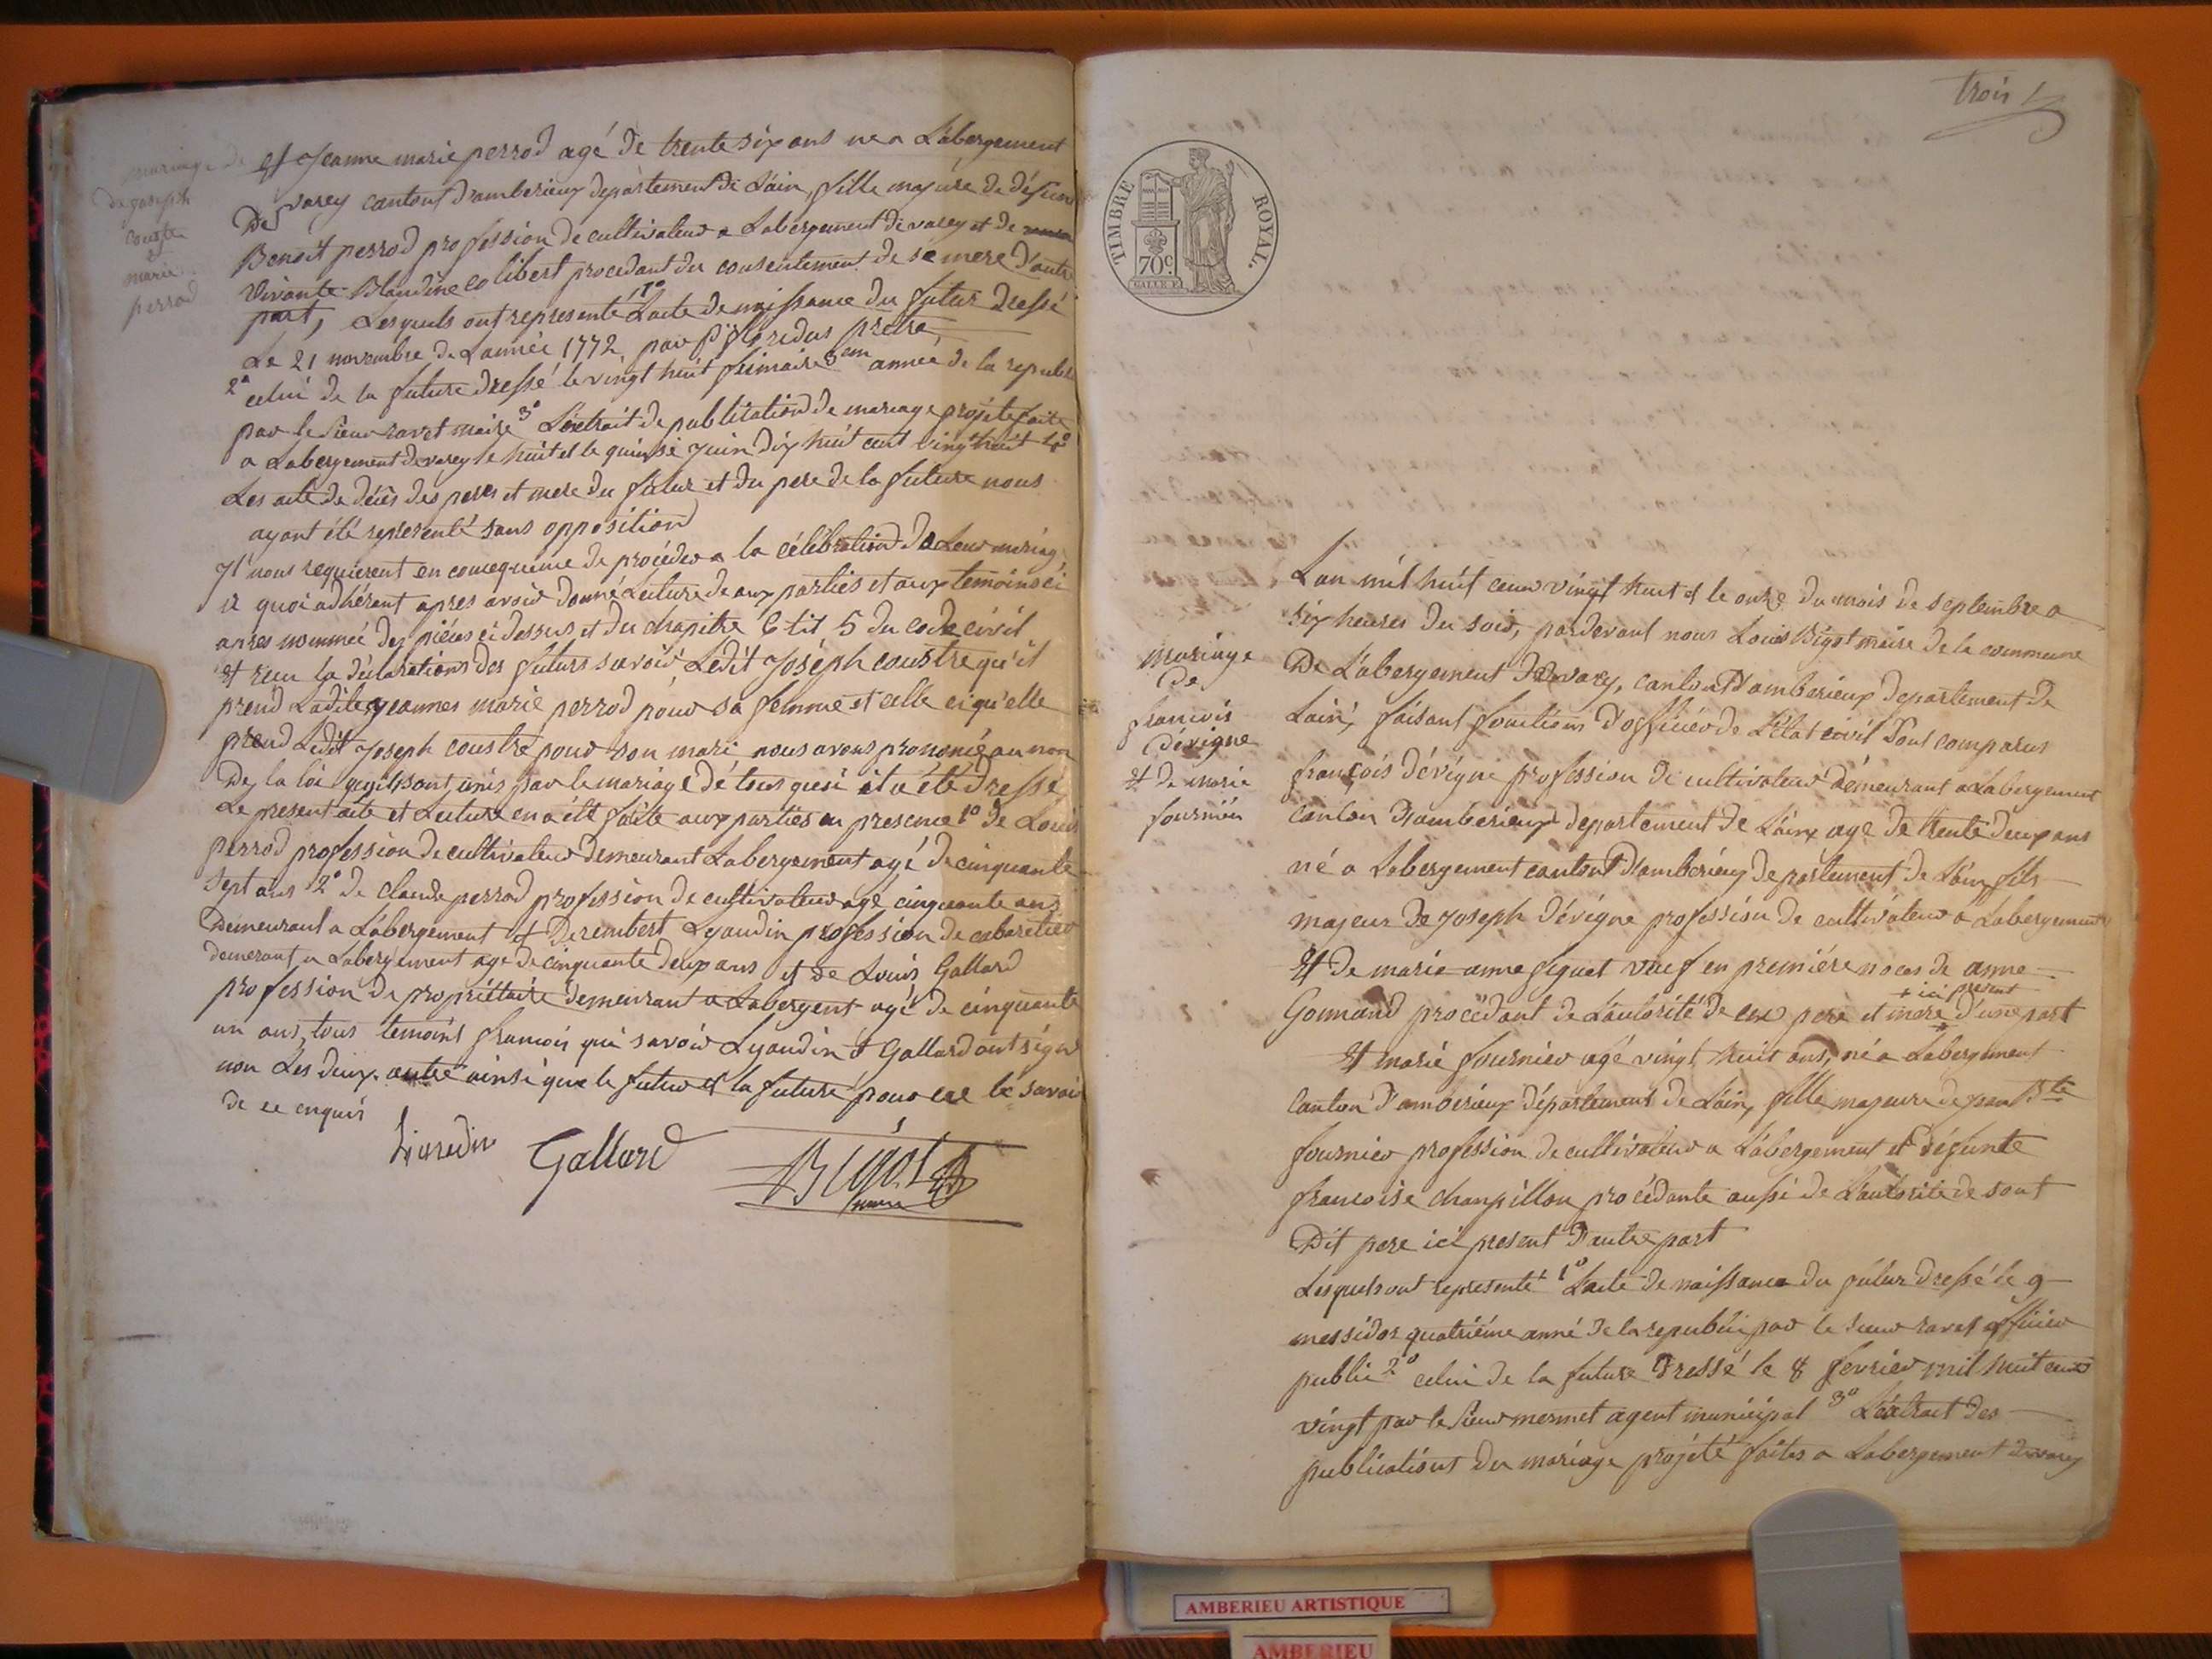 mariage de
de joseph
coustre
marie
perrod
Et Jeanne marie perrod agé de trente six ans ne a Labergement
De varey cantont d'amberieux departement de L'ain, fille majeure de défunt
Benoit perrod profession de cultivateur a Labergement de varey et de
vivante Blandine colibert procedant du consentement de se mere D'autre
part, Lesquels ont representé 1º Lacte de naissance du futur dressé
Le 21 novembre de L'année 1772, par prêtre
2º celui de la future dressé le vingt huit frimaire 3em année de la republi
par le sieur ravet maire 3º L'extrait de publication de mariage projeté faite
a Labergement de varey le huit et le quinse juin dix huit cent vingt huit 4º
Les acte de décès des peres et mere du futur et du pere de la future nous
ayant été representé sans opposition
Il nous requierent en consequence de procéder a la célébration de Leur mariag
a quoi adhérant apres avoir donné Lecture de aux parties et aux temoins ci
apres nommée des piéces ci dessus et du chapitre 6 tit 5 du code civil
et recu la déclarations des futurs savoir, Ledit Joséph coustre qu'il
prend Ladite jeannes marie perrod pour sa femme et celle ci qu'elle
prend Ledit Joseph coustre pour son mari nous avons prononcé au nom
De la loi qu'ils sont unis par le mariage dé tous quoi il a été dressé
Le present acte et Lecture en a été faite aux parties en presence 1º de Louis
perrod profession de cultivateur demeurant Labergement agé de cinquante
sept ans 2º de claude perrod profession de cultivateur agé cinquante ans
Demeurant a Labergement et Derembert Lyaudin profession de cabaretier
demerant a Labergement age de cinquante deux ans et de Louis Gallard
profession de propriettaire demeurant a Labergent agé de cinquante
un ans, tous temoins francois qui savoir Lyaudin & Gallard ont signé
non Les deux autre ainsi que le futur et la future pour ne le savoir
de ce enquis
Gallard
Bigot
maire
trois
TIMBRE ROYAL.
70c.
mariage
De
francois
Dévigne
et de marie
fournier
L'an mil huit cent vingt huit et le onze du mois de septembre a
six heures du soir, pardevant nous Louis Bigot maire de la commune
De L'abergement De varey, cantont d'amberieux departement de
Lain, faisant fonctions d'officiér de L'état civil Sont comparus
françois Dévigne profession de cultivateur demeurant a Labergement
canton D'amberieux departement de Lain agé de trente deux ans
né a Labergement cantont D'amberieux departement de L'ain fils
majeur de Joseph Dévigne profession de cultivateur a Labergement
Et De marie anne siguet veuf en premiére noces de anne
Gonnand procédant de L'autorité de ces pere et mere d'une part
+ ici present
Et marie fournier agé vingt huit ans, né a Labergement
Canton D'amberieux département de L'ain, fille majeure de jean Bte
fournier profession de cultivateur a Labergement et défunte
francoise champillon procédante aussi de L'autorité de sont
Dit pere ici present d'autre part
Lesquels ont representé 1º Lacte de naissance du futur dressé le 9
messidor quatriéme anné de la republi par le sieur ravet officier
public 2º celui de la future dressé le 8 fevrier mil huit cent
vingt par le sieur mermet agent municipal 3º L'extrait des
publications du mariage projeté faites a Labergement de varey
AMBERIEU ARTISTIQUE
AMBERIEU